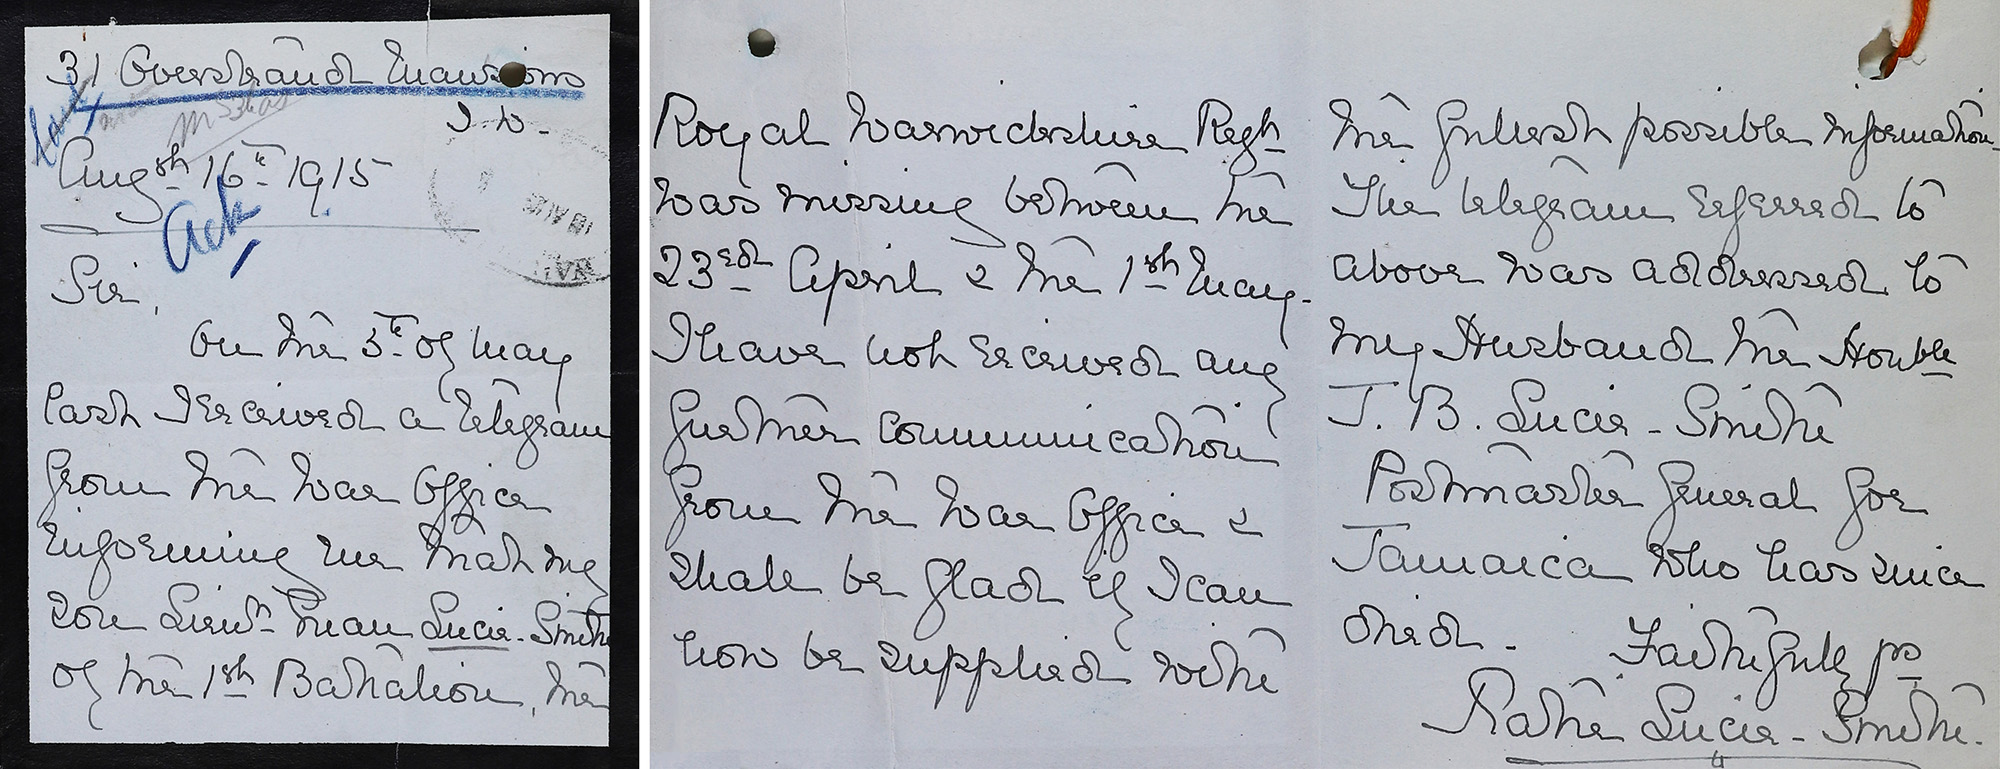 31 Overstrand Mansions
S.W.
Augst 16th 1915
Ack
Sir,
On the 5th of May
last I received a telegram
from the War Office
informing me that my
son Lieut. Euan Lucie-Smith
of the 1st Battalion, the
Royal Warwickshire Regt
was missing between the
23rd April & the 1st May.
I have not received any
further communication
from the War Office &
shall be glad if I can
now be supplied with
the fullest possible information.
The telegram referred to
above was addressed to
my Husband the Honble
J. B. Lucie-Smith
Postmaster General for
Jamaica who has since
died. Faithfully yrs
Katie Lucie-Smith.